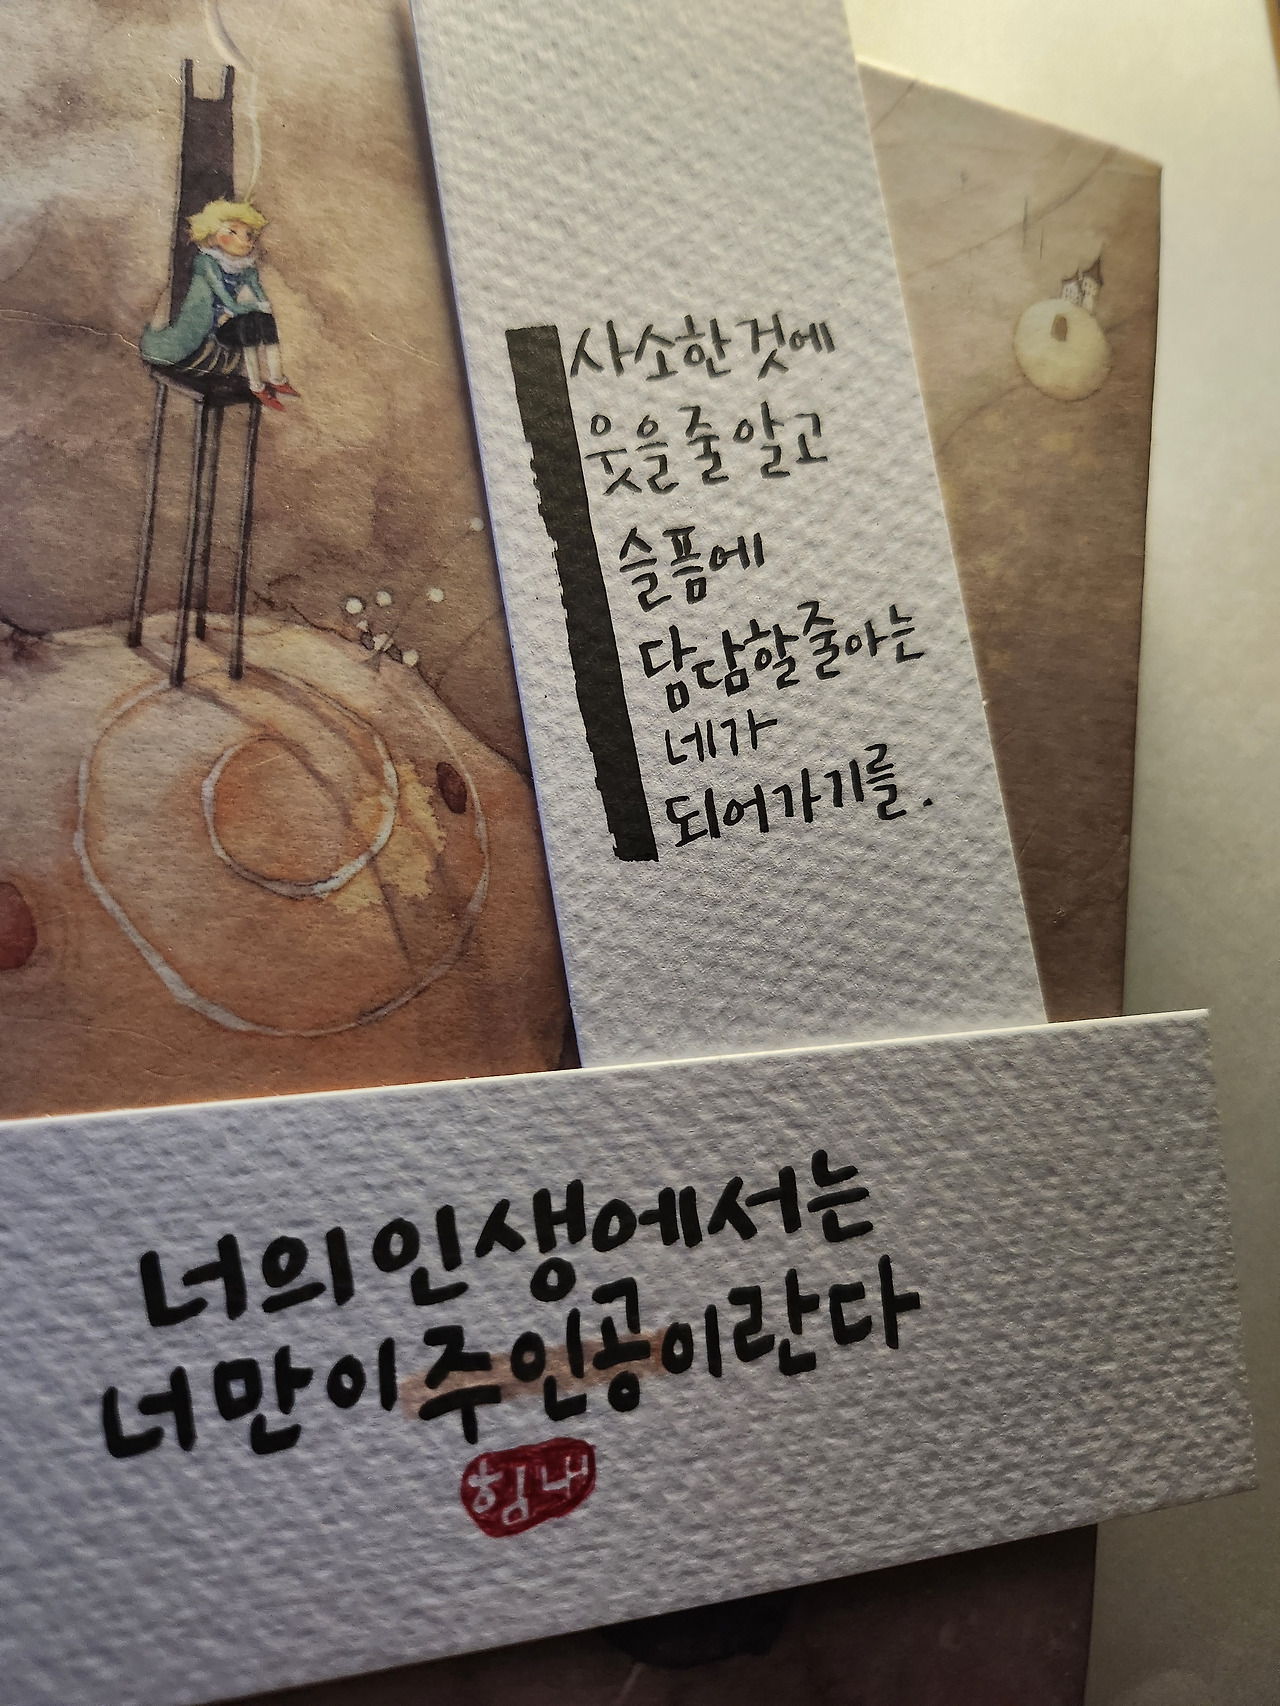 사소한 것에
웃을 줄 알고
슬픔에
담담할 줄 아는
네가
되어가기를.
너의 인생에서는
너만이 주인공이란다
힘내